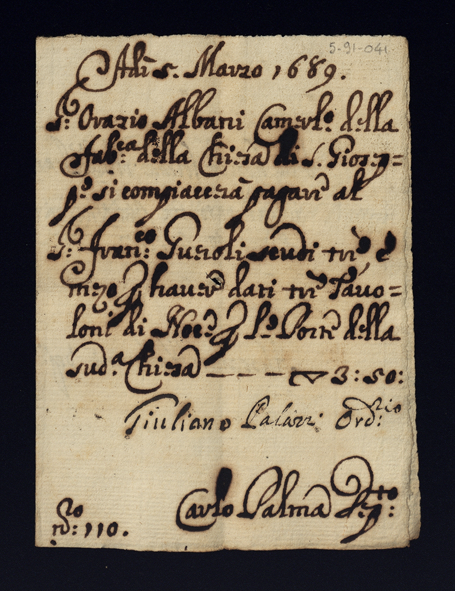 5-91-041
Adi 5. Marzo 1689.
Sr: Orazio Albani Camerlo. della
Fabca. della Chiesa di S. Giosep=
pe. si compiacerà pagare al
Sr: Franco: Gueroli scudi tre e
mezo p havere dati tre Tavo=
loni di Noce p le Porte della
suda. Chiesa — — — 3:50:
Giuliano Ordrio
Carlo Palma Depto:
nro: 110.